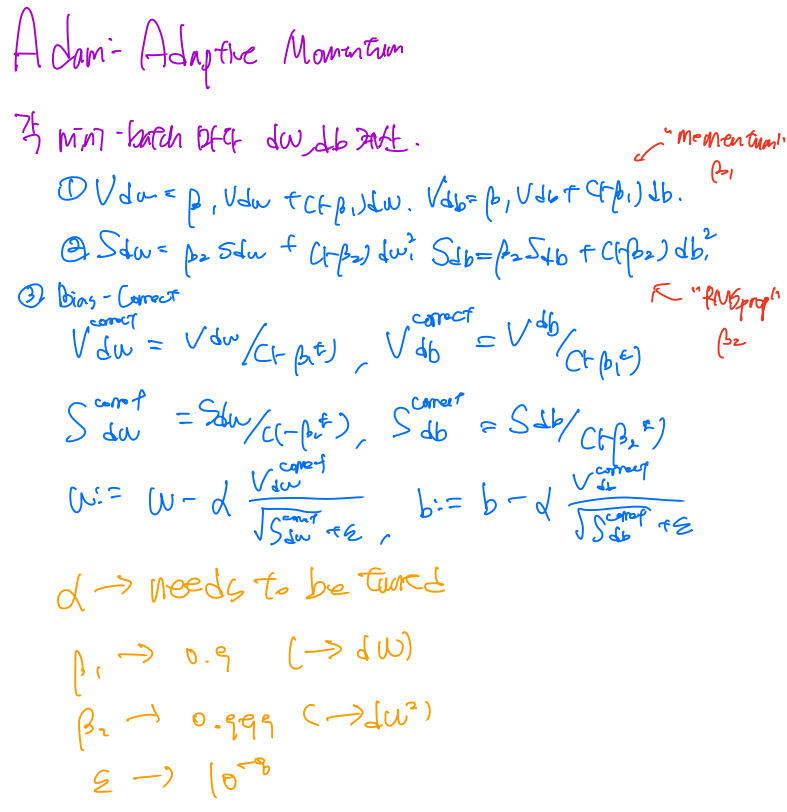 Adam:- Adaptive Momentum
각 mini-batch 마다 dw, db 계산.
"momentum"
β₁
① Vdw = β₁Vdw + (1-β₁)dw. Vdb = β₁Vdb + (1-β₁)db.
② Sdw = β₂Sdw + (1-β₂)dw², Sdb = β₂Sdb + (1-β₂)db²,
"RMSprop"
β₂
③ Bias-Correct
Vdw^correct = Vdw/(1-β₁^t), Vdb^correct = Vdb/(1-β₁^t)
Sdw^correct = Sdw/(1-β₂^t), Sdb^correct = Sdb/(1-β₂^t)
w := w - α Vdw^correct/(√Sdw^correct + ε), b := b - α Vdb^correct/(√Sdb^correct + ε)
α → needs to be tuned
β₁ → 0.9 (→ dw)
β₂ → 0.999 (→ dw²)
ε → 10⁻⁸